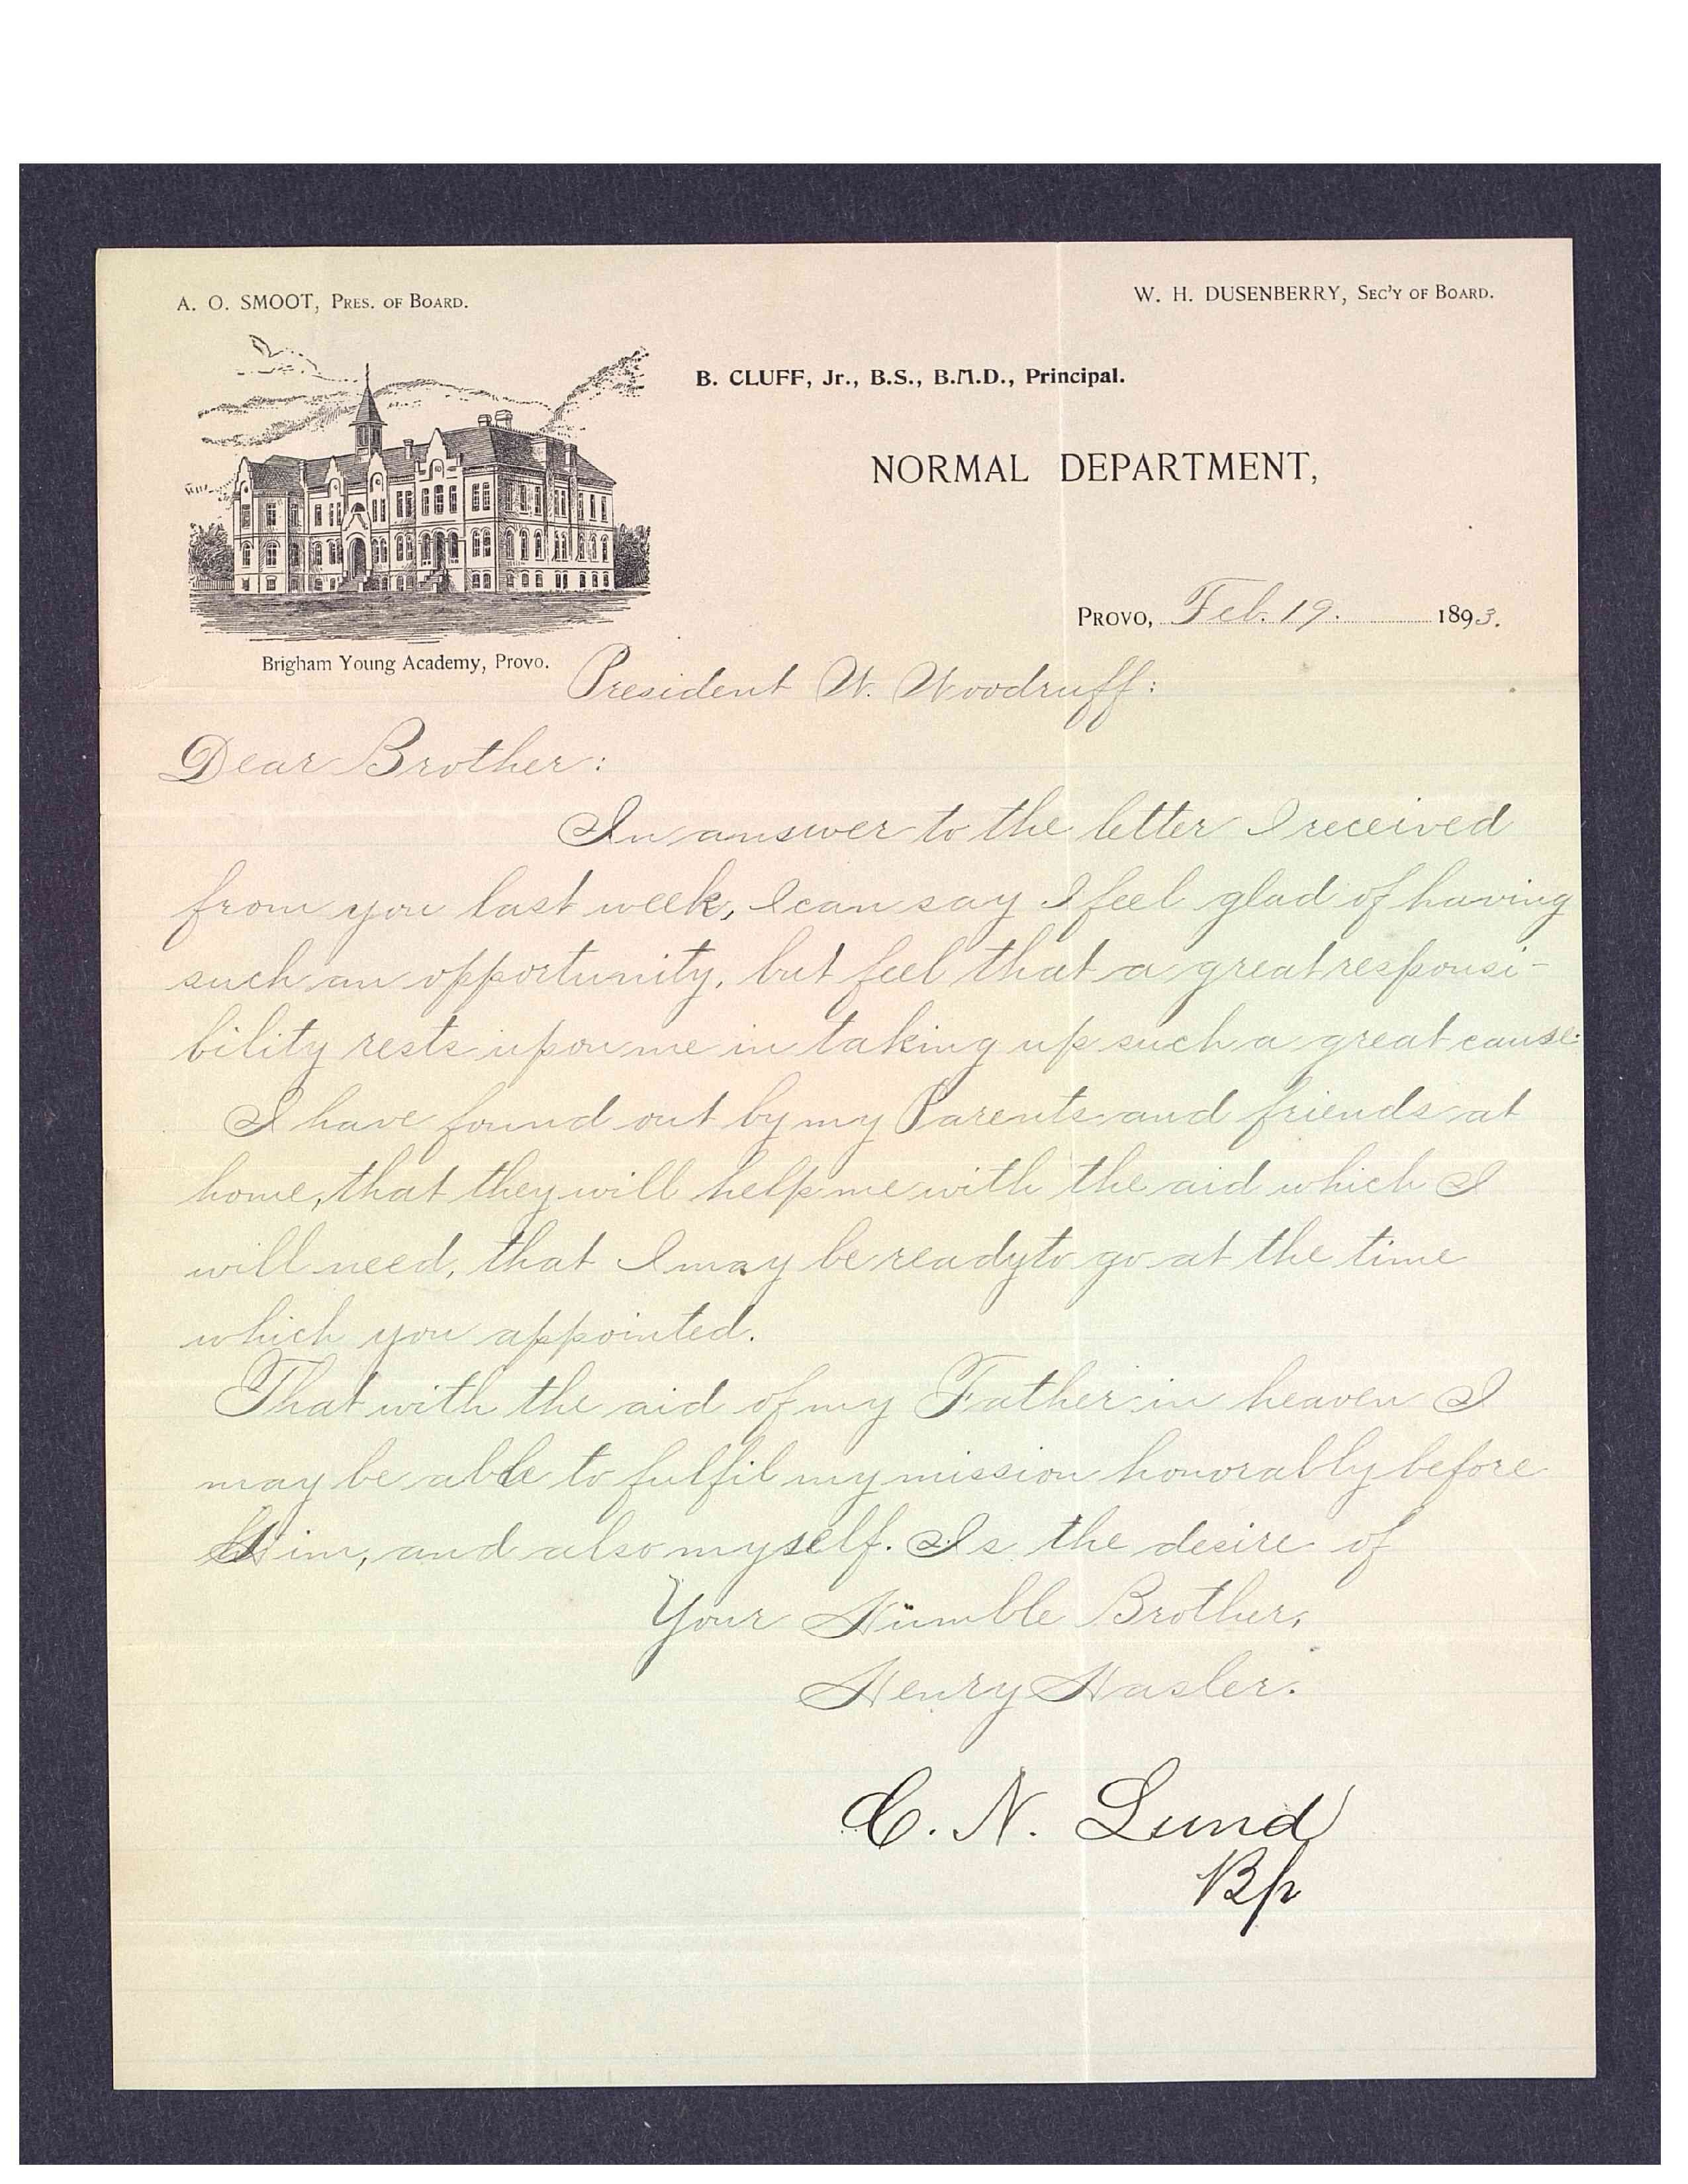 A. O. SMOOT, PRES. OF BOARD.
W. H. DUSENBERRY, SEC'Y OF BOARD.
B. CLUFF, Jr., B.S., B.M.D., Principal.
NORMAL DEPARTMENT,
PROVO, Feb. 19. 1893.
Brigham Young Academy, Provo.
President W. Woodruff:
Dear Brother:
In answer to the letter I received
from you last week, I can say I feel glad of having
such an opportunity, but feel that a great responsi-
bility rests upon me in taking up such a great cause.
I have found out by my Parents and friends at
home, that they will help me with the aid which I
will need, that I may be ready to go at the time
which you appointed.
That with the aid of my Father in heaven I
may be able to fulfil my mission honorably before
Him, and also myself. Is the desire of
Your Humble Brother,
Henry Hasler.
C. N. Lund
Bp